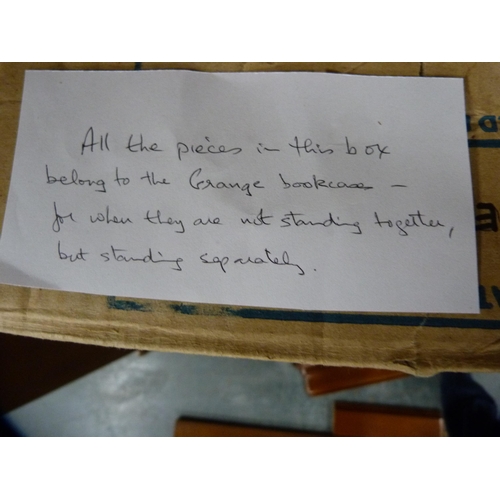 All the pieces in this box
belong to the Grange bookcase –
for when they are not standing together,
but standing separately.